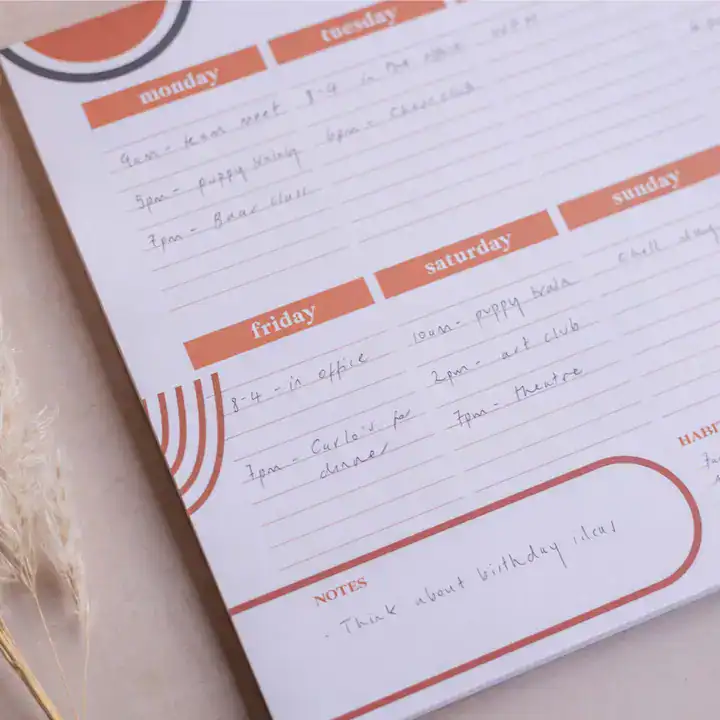 monday
9am - team meet
5pm - puppy training
7pm -
tuesday
8-4 in the office
6pm -
friday
8-4 - in office
7pm - Carlo's for
dinner
saturday
10am - puppy train
2pm - art club
7pm - theatre
sunday
chill day
NOTES
- Think about birthday ideas
HABI